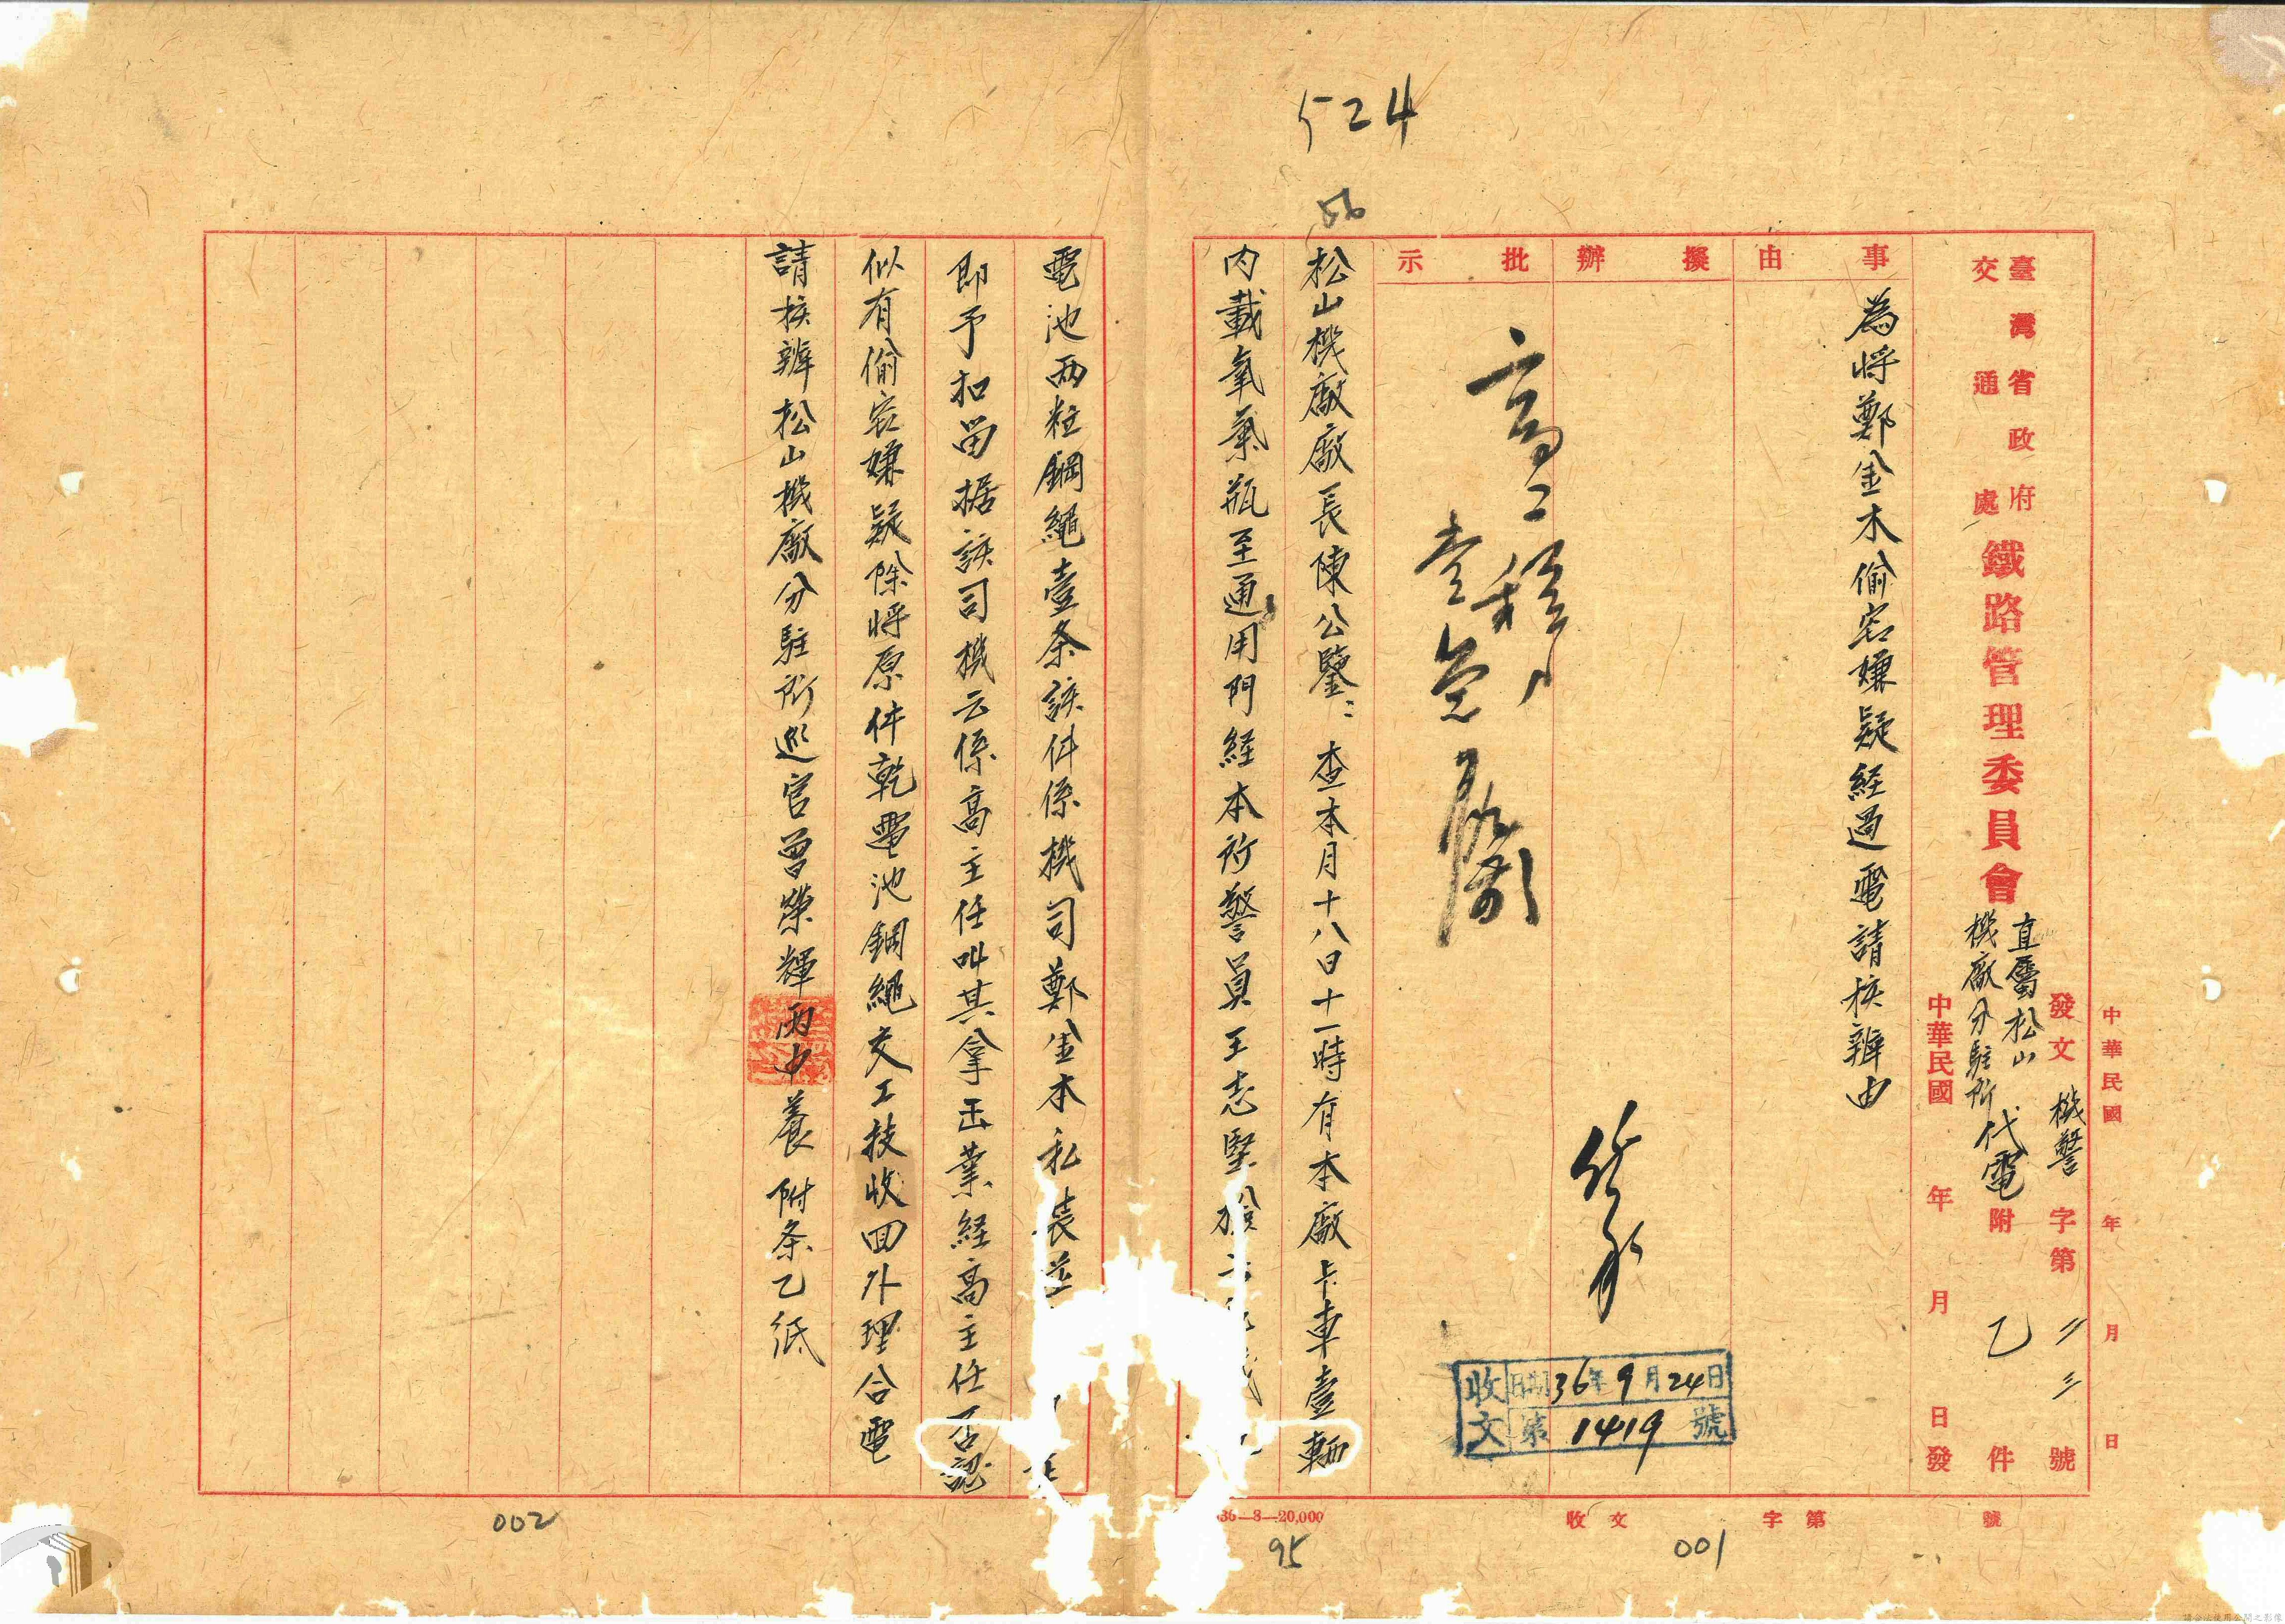 524
中華民國 年 月 日
發文 機警 字第 二三 號
臺灣省政府
交通處
鐵路管理委員會
直屬松山
機廠分駐所
代電
附 乙 件
中華民國 年 月 日發
事由
為將鄭金木偷窃嫌疑経過電請核辦由
擬辦
批示
高工程
查兔
收文 日期 36年9月24日
第 1419 號
松山機廠廠長陳公鑒：查本月十八日十一時有本廠卡車壹輛
內載氧氣瓶至通用門経本所警員王志堅檢
電池兩粒鋼繩壹条該件係機司鄭金木私裝並
即予扣留据該司機云係高主任叫其拿出業経高主任否認
似有偷窃嫌疑除將原件乾電池鋼繩交工技收回外理合電
請核辦松山機廠分駐所巡官曾榮輝丙申養附条乙紙
36—8—20,000
收文 字第 號
95
001
002